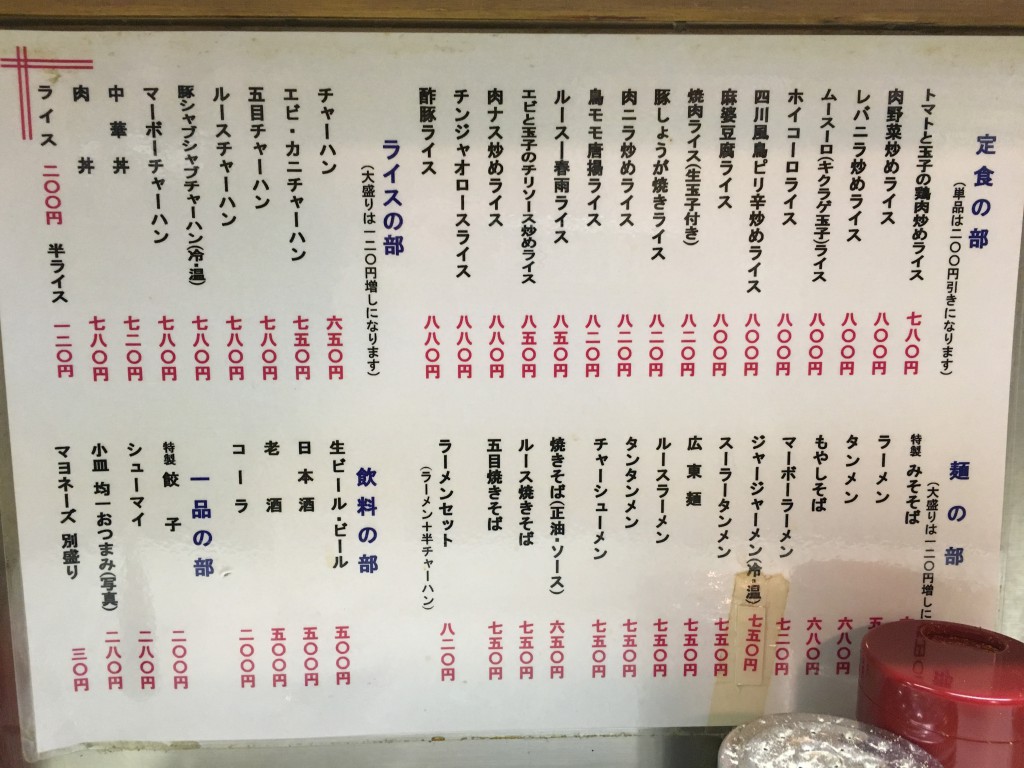 定食の部
(単品は二〇〇円引きになります)
トマトと玉子の鶏肉炒めライス 七八〇円
肉野菜炒めライス 八〇〇円
レバニラ炒めライス 八〇〇円
ムースーロ(キクラゲ玉子)ライス 八〇〇円
ホイコーロライス 八〇〇円
四川風鳥ピリ辛炒めライス 八〇〇円
麻婆豆腐ライス 八〇〇円
焼肉ライス(生玉子付き) 八二〇円
豚しょうが焼きライス 八二〇円
肉ニラ炒めライス 八二〇円
鳥モモ唐揚ライス 八二〇円
ルースー春雨ライス 八五〇円
エビと玉子のチリソース炒めライス 八五〇円
肉ナス炒めライス 八八〇円
チンジャオロースライス 八八〇円
酢豚ライス 八八〇円
ライスの部
(大盛りは一二〇円増しになります)
チャーハン 六五〇円
エビ・カニチャーハン 七五〇円
五目チャーハン 七八〇円
ルースチャーハン 七八〇円
豚シャブシャブチャーハン(冷・温) 七八〇円
マーボーチャーハン 七八〇円
中華丼 七二〇円
肉丼 七八〇円
ライス 二〇〇円 半ライス 一二〇円
麺の部
(大盛りは一二〇円増しに
特製 みそそば
ラーメン
タンメン 六八〇円
もやしそば 六八〇円
マーボーラーメン 七二〇円
ジャージャーメン(冷・温) 七五〇円
スーラータンメン 七五〇円
広東麺 七五〇円
ルースラーメン 七五〇円
タンタンメン 七五〇円
チャーシューメン 七五〇円
焼きそば(正油・ソース) 六五〇円
ルース焼きそば 七五〇円
五目焼きそば 七五〇円
ラーメンセット 八二〇円
(ラーメン+半チャーハン)
飲料の部
生ビール・ビール 五〇〇円
日本酒 五〇〇円
老酒 五〇〇円
コーラ 二〇〇円
一品の部
特製 餃子 二〇〇円
シューマイ 二八〇円
小皿 均一おつまみ(写真) 二八〇円
マヨネーズ 別盛り 三〇円